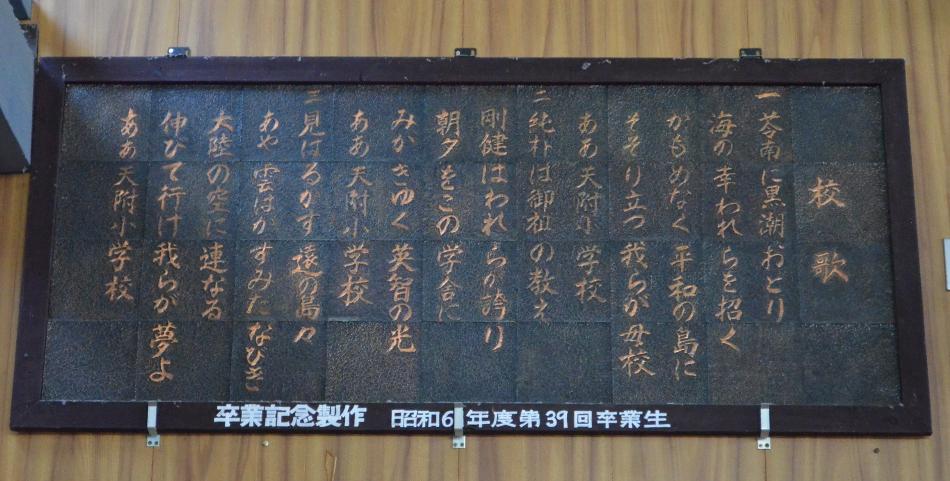 校歌
一 苓南に黒潮おどり
海の幸われらを招く
かもめなく 平和の島に
そそり立つ 我らが母校
ああ 天附小学校
二 純朴は御祖の教え
剛健はわれらが誇り
朝夕をこの学舎に
みがきゆく 英智の光
ああ 天附小学校
三 見はるかす 遠の島々
あや雲はかすみたなびき
大陸の空に連なる
伸びて行け我らが夢よ
ああ天附小学校
卒業記念製作 昭和6 年度第39回卒業生